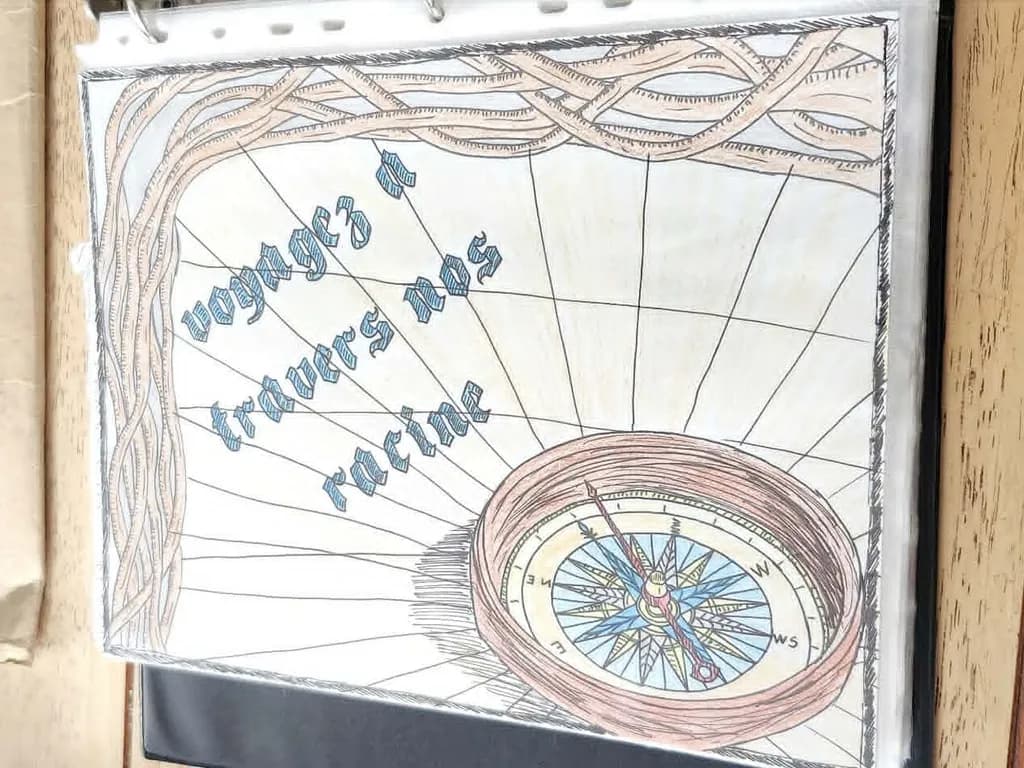 voyagez à
travers nos
racine
W
WS
NE
E